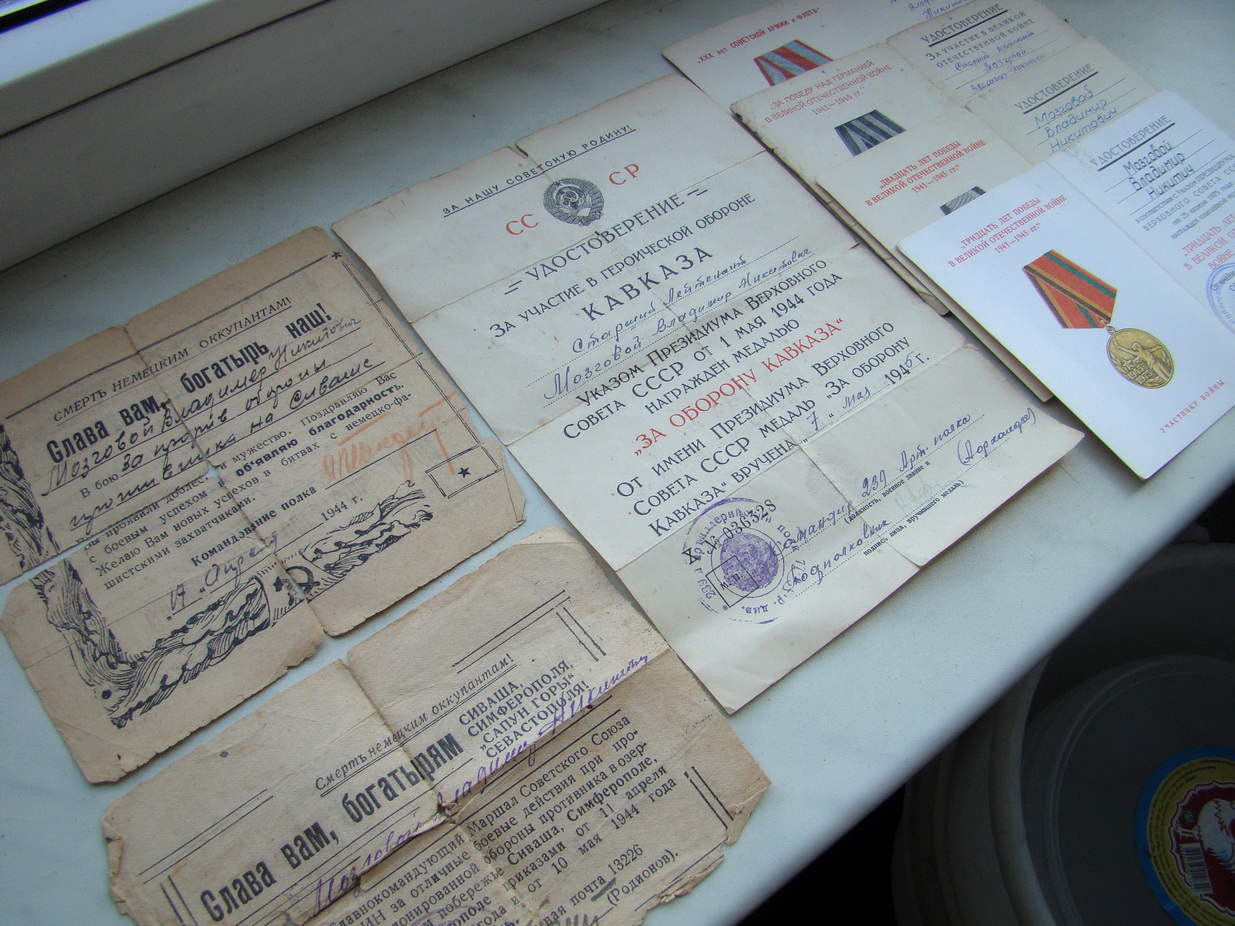 СМЕРТЬ НЕМЕЦКИМ ОККУПАНТАМ!
Слава вам, богатырь наш!
Мозговой Владимер Никитович
В бою за прорив обороны
на Сиваше
проявили доблесть и мужество. Поздравляю Вас
с боевым успехом и об'являю благодарность.
Желаю Вам новых успехов в битвах с немецко-фа-
шистскими захватчиками.
Командование полка
17. Апрел 1944 г.
Смерть немецким оккупантам!
Слава вам, богатырям
СИВАША,
СИМФЕРОПОЛЯ,
„САПУН ГОРЫ“
СЕВАСТОПОЛЯ!
Мозговой Владимир Никитович
Маршал Советского Союза
за отличные боевые действия при про-
обороны противника в озер-
побережье Сиваша, Симферополе,
приказами от 11 апреля
года и от 10 мая 1944 года
почта 13226
(Родионов).
ЗА НАШУ СОВЕТСКУЮ РОДИНУ!
СС СР
УДОСТОВЕРЕНИЕ
ЗА УЧАСТИЕ В ГЕРОИЧЕСКОЙ ОБОРОНЕ
КАВКАЗА
Старший Лейтенант
Мозговой Владимир Никитович
УКАЗОМ ПРЕЗИДИУМА ВЕРХОВНОГО
СОВЕТА СССР ОТ 1 МАЯ 1944 ГОДА
НАГРАЖДЕН МЕДАЛЬЮ
„ЗА ОБОРОНУ КАВКАЗА“
ОТ ИМЕНИ ПРЕЗИДИУМА ВЕРХОВНОГО
СОВЕТА СССР МЕДАЛЬ „ЗА ОБОРОНУ
КАВКАЗА“ ВРУЧЕНА „7“ мая 1946 г.
036328
М.П.
Командир 239 Арт. полка
(должность, военное звание и
Подполковник
подпись лица, вручившего медаль)
„XXX лет СОВЕТСКОЙ АРМИИ и ФЛОТА“
„ЗА ПОБЕДУ НАД ГЕРМАНИЕЙ
В ВЕЛИКОЙ ОТЕЧЕСТВЕННОЙ ВОЙНЕ
1941—1945 гг.“
УДОСТОВЕРЕНИЕ
ЗА УЧАСТИЕ В ВЕЛИКОЙ
ОТЕЧЕСТВЕННОЙ ВОЙНЕ
„ДВАДЦАТЬ ЛЕТ ПОБЕДЫ
В ВЕЛИКОЙ ОТЕЧЕСТВЕННОЙ ВОЙНЕ
1941—1945 гг.“
УДОСТОВЕРЕНИЕ
Мозговой
Владимир
Никитович
„ТРИДЦАТЬ ЛЕТ ПОБЕДЫ
В ВЕЛИКОЙ ОТЕЧЕСТВЕННОЙ ВОЙНЕ
1941—1945 гг.“
УЧАСТНИКУ ВОЙНЫ
УДОСТОВЕРЕНИЕ
Мозговой
Владимир
Никитич